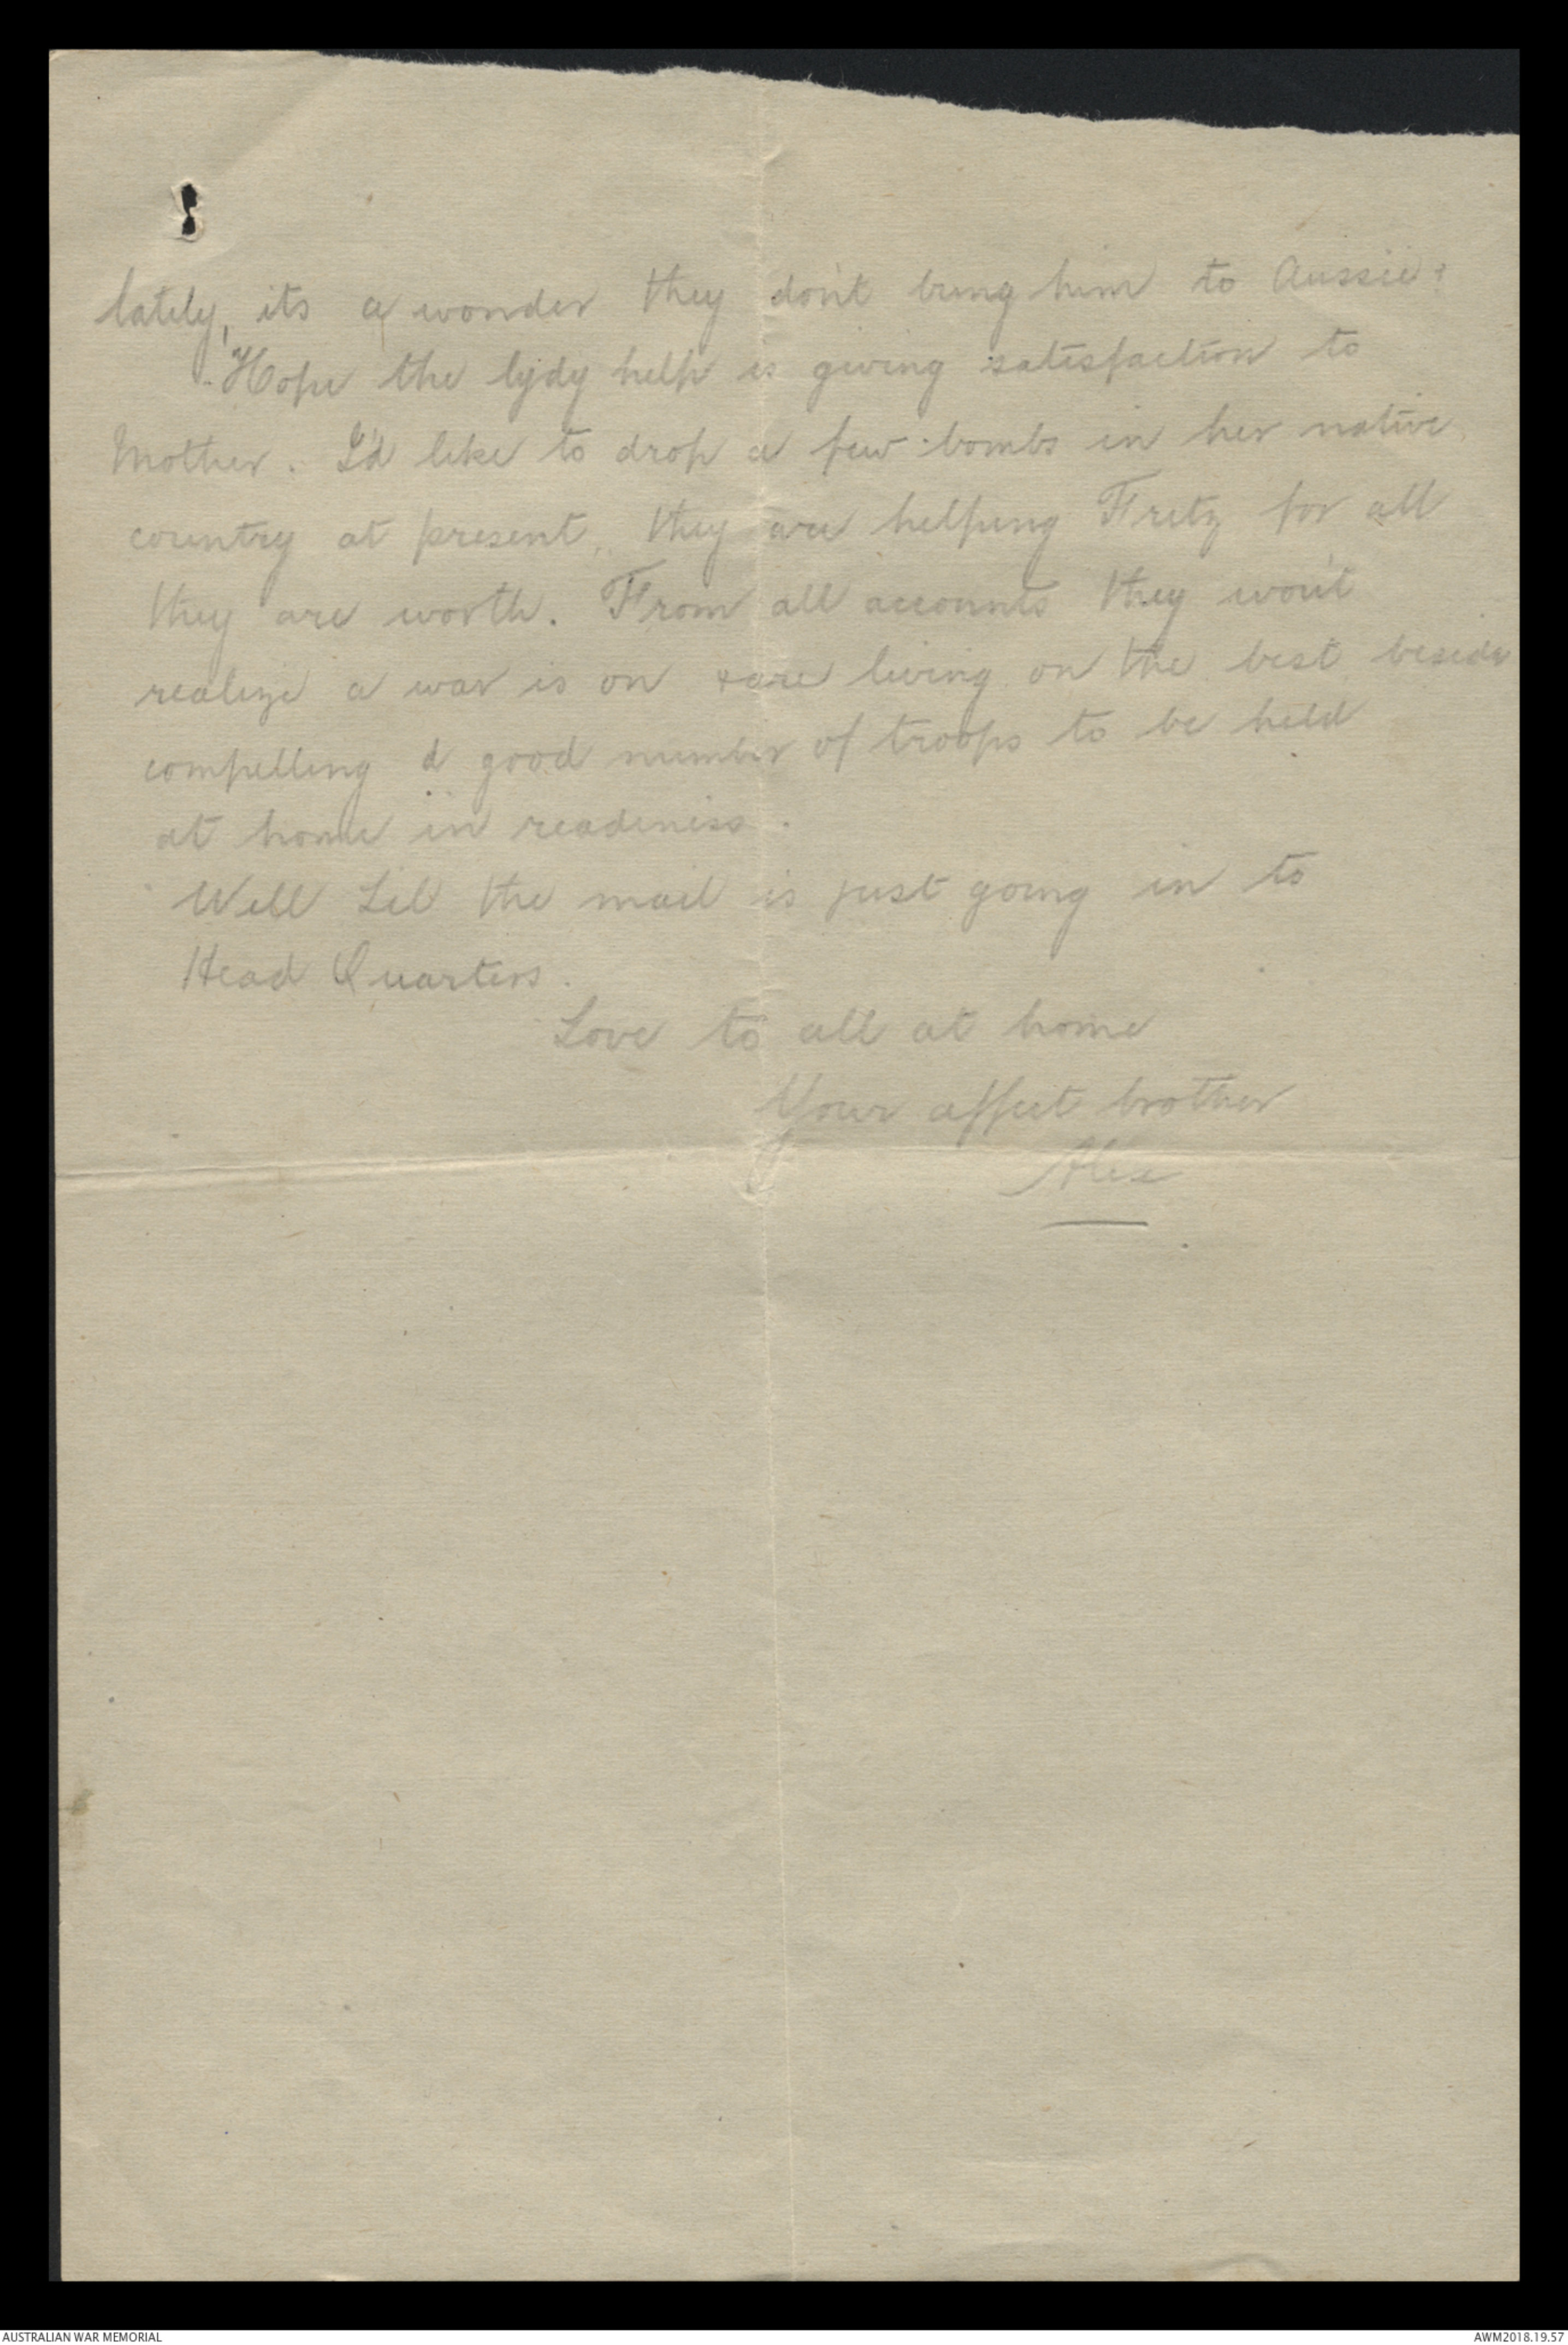 lately, its a wonder they don't bring him to Aussie?
Hope the lydy help is giving satisfaction to
Mother. I'd like to drop a few bombs in her native
country at present, they are helping Fritz for all
they are worth. From all accounts they won't
realize a war is on & are living on the best beside
compelling a good number of troops to be held
at home in readiness.
Well Lil the mail is just going in to
Head Quarters.
Love to all at home
Your affect brother
Alex
AUSTRALIAN WAR MEMORIAL
AWM2018.19.57